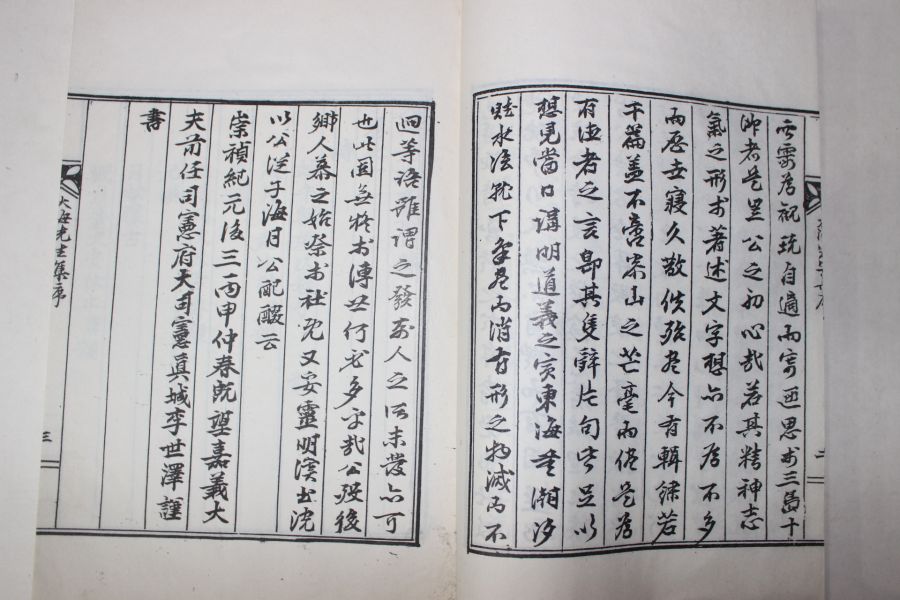 自適而寄遐思於三島十
卽者豈是公之初心哉若其精神志
氣之形於著述文字想亦不爲不多
而歷世寢久散佚殆盡今有輯錄若
干篇盖不啻泰山之芒毫而儘是爲
有德者之言卽其隻辭片句皆足以
想見當日講明道義之實東海
水陸 下 盡而消有形之物滅而不
迴等語雖謂之發前人之所未發亦可
也此固無待於傳世何必多乎哉公歿後
鄉人慕之始祭於社 又妥靈明溪書院
以公從子海月公配醊云
崇禎紀元後三丙申仲春旣望嘉義大
夫前任司憲府大司憲眞城李世澤謹
書
大海先生集序
三